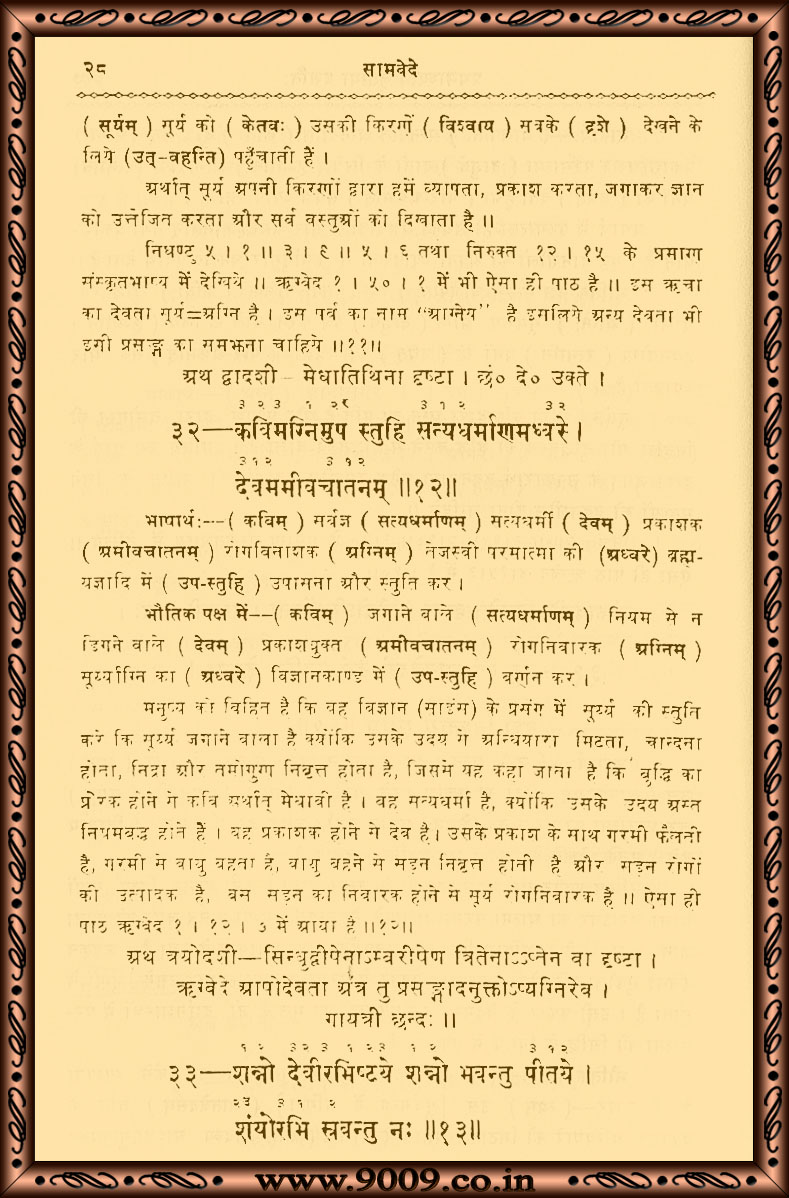 २८ सामवेदे
( सूर्यम् ) सूर्य को ( केतवः ) उसकी किरणें ( विश्वाय ) सबके ( दृशे ) देखने के
लिये (उत्-वहन्ति) पहुँचाती हैं ।
अर्थात् सूर्य अपनी किरणों द्वारा हमें व्यापता, प्रकाश करता, जगाकर ज्ञान
को उत्तेजित करता और सर्व वस्तुओं को दिखाता है ॥
निघण्टु ५ । १ ॥ ३ । ९ ॥ ५ । ६ तथा निरुक्त १२ । १५ के प्रमाण
संस्कृतभाष्य में देखिये ॥ ऋग्वेद १ । ५० । १ में भी ऐसा ही पाठ है ॥ इस ऋचा
का देवता सूर्य=अग्नि है । इस पर्व का नाम “आग्नेय” है इसलिये अन्य देवता भी
इसी प्रसङ्ग का समझना चाहिये ॥११॥
अथ द्वादशी—मेधातिथिना दृष्टा । छं० दे० उक्ते ।
३ २ ३ १ २र ३ १ २ ३ २
३२—कविमग्निमुप स्तुहि सत्यधर्माणमध्वरे ।
३ १ २ ३ १ २
देवममीवचातनम् ॥१२॥
भाषार्थः—( कविम् ) सर्वज्ञ ( सत्यधर्माणम् ) सत्यधर्मी ( देवम् ) प्रकाशक
( अमीवचातनम् ) रोगविनाशक ( अग्निम् ) तेजस्वी परमात्मा की (अध्वरे) ब्रह्म-
यज्ञादि में ( उप-स्तुहि ) उपासना और स्तुति कर ।
भौतिक पक्ष में—( कविम् ) जगाने वाले ( सत्यधर्माणम् ) नियम से न
डिगने वाले ( देवम् ) प्रकाशयुक्त ( अमीवचातनम् ) रोगनिवारक ( अग्निम् )
सूर्य्याग्नि का ( अध्वरे ) विज्ञानकाण्ड में ( उप-स्तुहि ) वर्णन कर ।
मनुष्य को विहित है कि वह विज्ञान (साइंस) के प्रसंग में सूर्य्य की स्तुति
करे कि सूर्य्य जगाने वाला है क्योंकि उसके उदय से अन्धियारा मिटता, चान्दना
होता, निद्रा और तमोगुण निवृत्त होता है, जिससे यह कहा जाता है कि बुद्धि का
प्रेरक होने से कवि अर्थात् मेधावी है । वह सत्यधर्मा है, क्योंकि उसके उदय अस्त
नियमबद्ध होते हैं । वह प्रकाशक होने से देव है। उसके प्रकाश के साथ गरमी फैलती
है, गरमी से वायु बहता है, वायु बहने से सड़न निवृत्त होती है और सड़न रोगों
की उत्पादक है, बस सड़न का निवारक होने से सूर्य रोगनिवारक है ॥ ऐसा ही
पाठ ऋग्वेद १ । १२ । ७ में आया है ॥१२॥
अथ त्रयोदशी—सिन्धुद्वीपेनाऽम्बरीषेण त्रितेनाऽऽप्तेन वा दृष्टा ।
ऋग्वेदे आपोदेवता अत्र तु प्रसङ्गादनुक्तोऽप्यग्निरेव ।
गायत्री छन्दः ॥
१ २ ३ २ ३ १ २ ३ १ २ ३ १ २
३३—शन्नो देवीरभिष्टये शन्नो भवन्तु पीतये ।
२ ३ ३ १ २
शंयोरभि स्रवन्तु नः ॥१३॥
www.9009.co.in